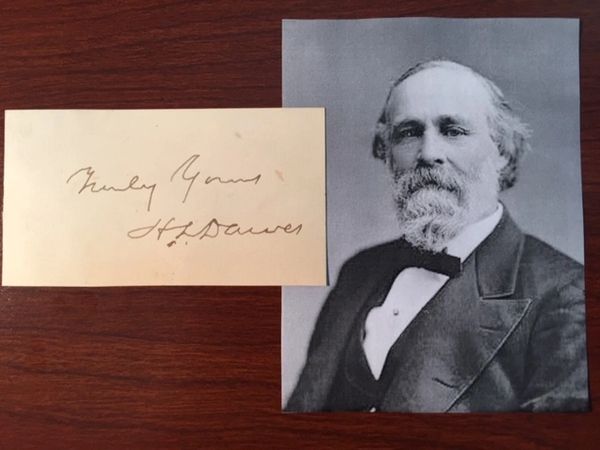 Truly Yours
H L Dawes